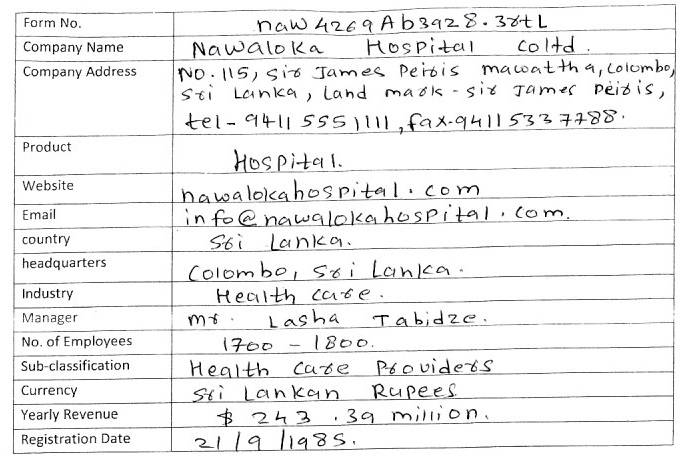 Form No. naw4269Ab3928.38tL
Company Name Nawaloka Hospital coltd.
Company Address NO.115, sir James Peiris mawattha, Colombo,
Sri Lanka, Land mark - sir James Peiris,
tel- 94115551111, fax-94115337788.
Product Hospital.
Website nawalokahospital.com
Email info@nawalokahospital.com.
country Sri Lanka.
headquarters Colombo, Sri Lanka.
Industry Health care.
Manager mr. Lasha Tabidze.
No. of Employees 1700 - 1800.
Sub-classification Health care Providers
Currency Sri Lankan Rupees
Yearly Revenue $ 243.39 million.
Registration Date 21/9/1985.